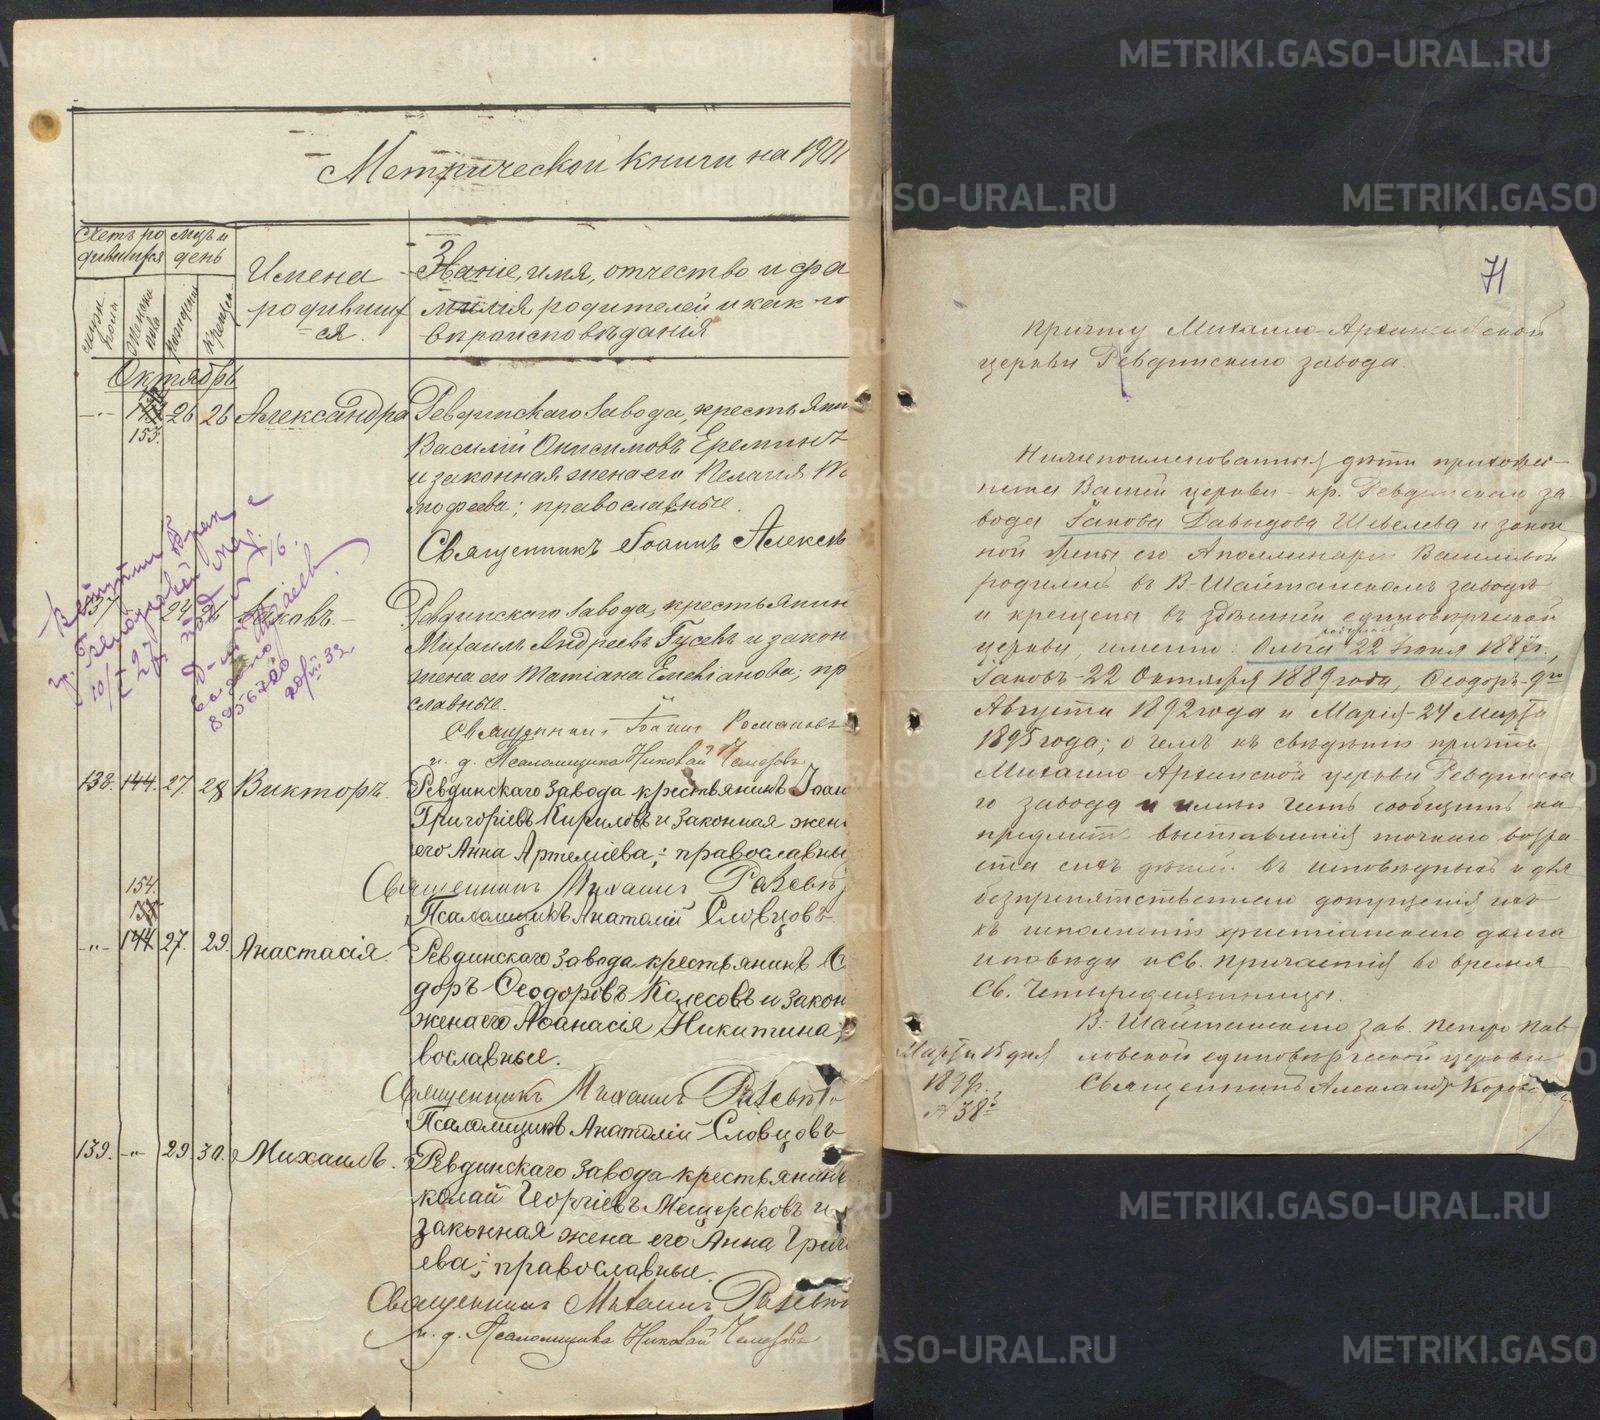 Метрической книги на 1901
Счетъ ро
дившихся
мцъ и
день
мужеска
пола
женска
рожденія
крещен
Имена
родивших
ся.
Званіе, имя, отчество и фа
милія родителей и какого
вѣроисповѣданія
Октябрь
153.
26 26 Александра
Ревдинскаго завода, крестьянин
Василій Онисимовъ Ереминъ
и законная жена его Пелагія Ти
мофеева; православные.
Священникъ Іоаннъ Алексѣ
137 24 26 Іаковъ
Ревдинскаго завода, крестьянин
Михаилъ Андреевъ Гусевъ и закон
жена его Татіана Емеліанова; пр
славные.
Священникъ Іоаннъ
и. д. Псаломщика Николай
Вступил в брак с
10/II 27
8956700
138. 144. 27. 28 Викторъ.
Ревдинскаго завода крестьянинъ Іоан
Григоріевъ Кириловъ и законная жен
его Анна Артеміева; православны
Священникъ Михаилъ
Псаломщикъ Анатолій Словцовъ
154.
144. 27. 29. Анастасія.
Ревдинскаго завода крестьянинъ
доръ Ѳеодоровъ Колесовъ и закон
жена его Аѳанасія Никитина;
вославные.
Священникъ Михаилъ
Псаломщикъ Анатолій Словцовъ
139. -„- 29 30. Михаилъ.
Ревдинскаго завода крестьянинъ
колай Георгіевъ Мещерсковъ и
законная жена его Анна Григ
ева; православные.
Священникъ Михаилъ
и. д. Псаломщика Николай
71
Причту Михаило-Архангельской
церкви Ревдинскаго завода.
Нижепоименованныя дѣти прихожа-
нина Вашей церкви - кр. Ревдинскаго за-
вода Іакова Давыдова Шевелева и закон
ной жены его Аполлинаріи Васильевой
родились въ В-Шайтанскомъ заводѣ
и крещены въ здѣшней единовѣрческой
церкви, именно: Ольга 22 Іюня 1887г.,
Іаковъ - 22 Октября 1889 года, Ѳеодоръ - 9го
Августа 1892 года и Марія - 24 Марта
1895 года; о чемъ къ свѣдѣнію причта
Михаило Архангельской церкви Ревдинска
го завода и имѣю честь сообщить на
предметъ выставленія точнаго возра-
ста сихъ дѣтей въ исповѣдныхъ и для
безпрепятственнаго допущенія ихъ
къ исполненію христіанскаго долга
исповѣди и Св. Причастія во время
Св. Четыредесятницы.
В.-Шайтанскаго зав. Петро Пав-
ловской единовѣрческой церкви
Священникъ Александръ
Марта 15 дня
1899г.
№ 38й